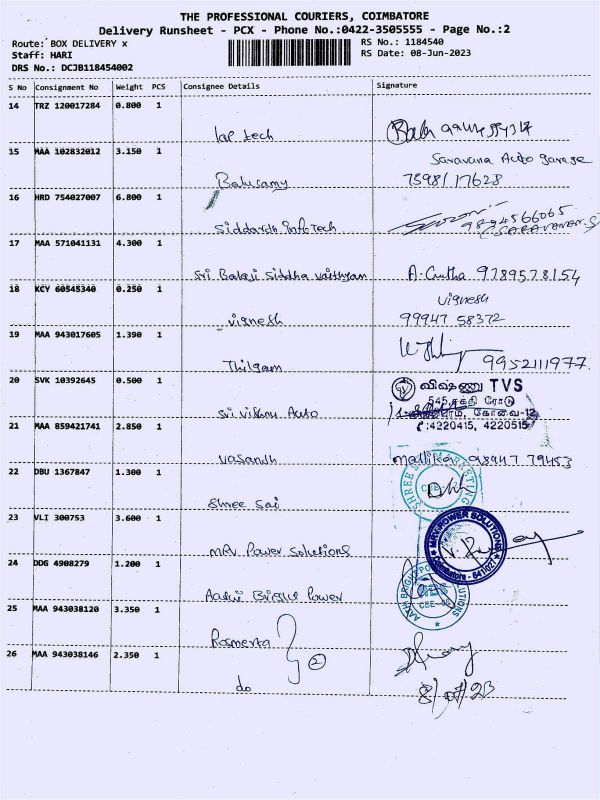 THE PROFESSIONAL COURIERS, COIMBATORE
Delivery Runsheet - PCX - Phone No.:0422-3505555 - Page No.:2
Route: BOX DELIVERY x
RS No.: 1184540
Staff: HARI
RS Date: 08-Jun-2023
DRS No.: DCJB118454002
S No Consignment No Weight PCS Consignee Details Signature
14 TRZ 120017284 0.800 1
lap tech
15 MAA 102832012 3.150 1
Saravana Auto garage
Balusamy 7598117628
16 HRD 754027007 6.800 1
9894566065
Siddarth InfoTech (SARAVANAN.S)
17 MAA 571041131 4.300 1
Sri Balaji Siddha vaithyam 9789578154
18 KCY 60545340 0.250 1
vignesh
vignesh 99947 58372
19 MAA 943017605 1.390 1
Thilgam 9952111977
20 SVK 10392645 0.500 1
விஷ்ணு TVS
545, சக்தி ரோடு
Sri Vishnu Auto கோவை-12
:4220415, 422051
21 MAA 859421741 2.850 1
vasandh mallika 98947 79453
22 DBU 1367847 1.300 1
Shree Sai
23 VLI 300753 3.600 1
MRV POWER SOLUTIONS
Coimbatore - 641027
MRV Power Solutions
24 DDG 4908279 1.200 1
Aakhi Bright Power
25 MAA 943038120 3.350 1
Rosmerta
2
26 MAA 943038146 2.350 1
do